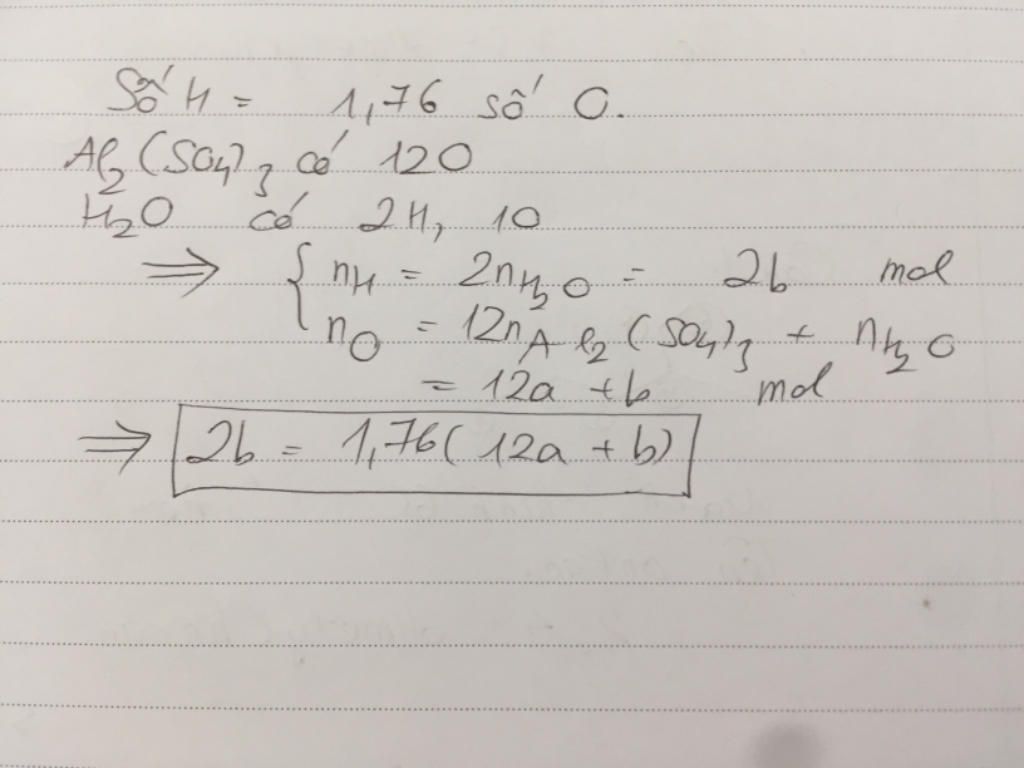 Số H = 1,76 số O.
Al₂(SO₄)₃ có 12O
H₂O có 2H, 1O
⇒ { nH = 2nH₂O = 2b mol
nO = 12nAl₂(SO₄)₃ + nH₂O
= 12a + b mol
⇒ 2b = 1,76(12a + b)